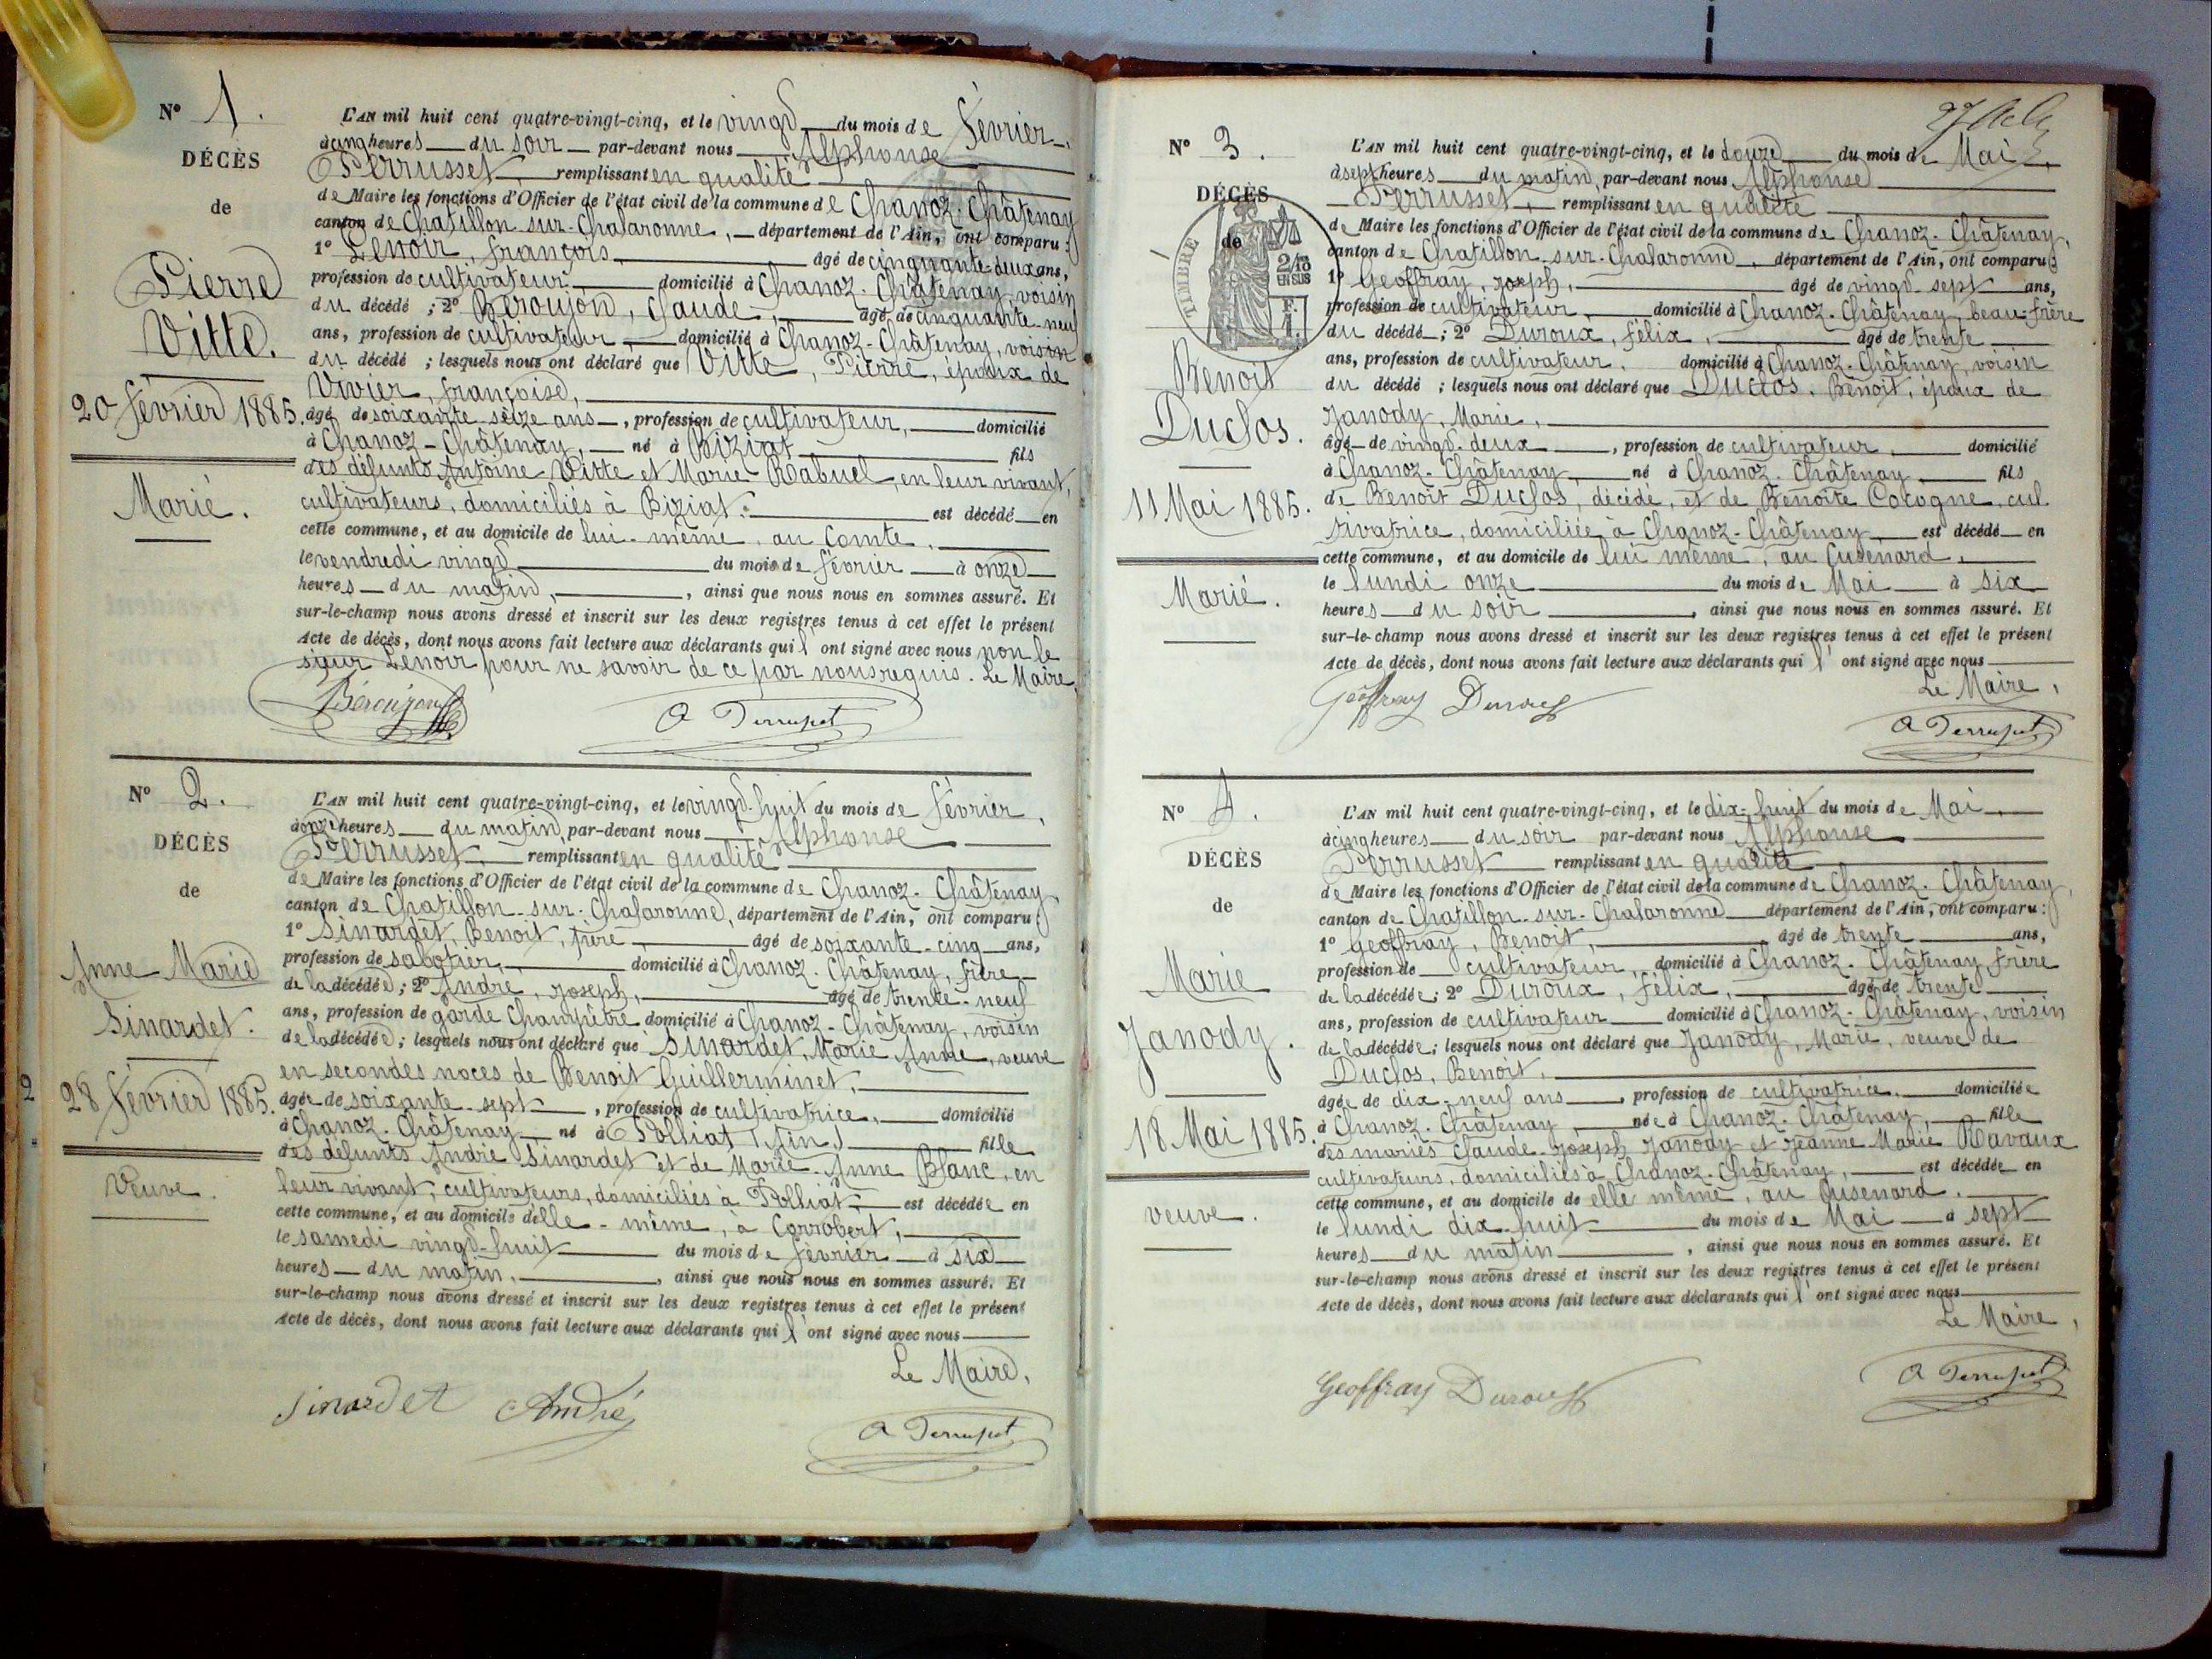 N° 1.
DÉCÈS
de
Pierre
Vitte.
20 février 1885.
Marié.
L'AN mil huit cent quatre-vingt-cinq, et le vingt du mois de février,
à cinq heures du soir par-devant nous Alphonse
Perrusset, remplissant en qualité
de Maire les fonctions d'Officier de l'état civil de la commune de Chanoz-Châtenay
canton de Chatillon-sur-Chalaronne, département de l'Ain, ont comparu :
1° Lenoir, françois, âgé de cinquante-deux ans,
profession de cultivateur, domicilié à Chanoz-Châtenay, voisin
du décédé ; 2° Beroujon, Claude, âgé de cinquante-neuf
ans, profession de cultivateur, domicilié à Chanoz-Châtenay, voisin
du décédé ; lesquels nous ont déclaré que Vitte, Pierre, époux de
Vivier, françoise,
âgé de soixante-seize ans, profession de cultivateur, domicilié
à Chanoz-Châtenay, né à Biziat fils
des défunts Antoine Vitte et Marie Rabuel, en leur vivant,
cultivateurs, domiciliés à Biziat. est décédé en
cette commune, et au domicile de lui-même, au Comte,
le vendredi vingt du mois de février à onze
heures du matin, ainsi que nous nous en sommes assuré. Et
sur-le-champ nous avons dressé et inscrit sur les deux registres tenus à cet effet le présent
Acte de décès, dont nous avons fait lecture aux déclarants qui l'ont signé avec nous non le
sieur Lenoir pour ne savoir de ce par nous requis. Le Maire,
Béroujon A Perrusset
N° 2.
DÉCÈS
de
Anne Marie
Sinardet.
2
28 février 1885.
Veuve.
L'AN mil huit cent quatre-vingt-cinq, et le vingt-huit du mois de février,
à onze heures du matin, par-devant nous Alphonse
Perrusset, remplissant en qualité
de Maire les fonctions d'Officier de l'état civil de la commune de Chanoz-Châtenay
canton de Chatillon-sur-Chalaronne, département de l'Ain, ont comparu :
1° Sinardet, Benoit, frère, âgé de soixante-cinq ans,
profession de sabotier, domicilié à Chanoz-Châtenay, frère
de la décédée ; 2° André, Joseph, âgé de trente-neuf
ans, profession de garde Champêtre domicilié à Chanoz-Châtenay, voisin
de la décédée ; lesquels nous ont déclaré que Sinardet, Marie Anne, veuve
en secondes noces de Benoit Guillerminet,
âgée de soixante-sept, profession de cultivatrice, domicilié
à Chanoz-Châtenay né à Polliat (Ain) fille
des défunts André Sinardet et de Marie-Anne Blanc, en
leur vivant, cultivateurs, domiciliés à Polliat, est décédée en
cette commune, et au domicile d'elle-même, à Corrobert,
le samedi vingt-huit du mois de février à six
heures du matin, ainsi que nous nous en sommes assuré. Et
sur-le-champ nous avons dressé et inscrit sur les deux registres tenus à cet effet le présent
Acte de décès, dont nous avons fait lecture aux déclarants qui l'ont signé avec nous
Le Maire,
Sinardet André
A Perrusset
N° 3.
DÉCÈS
de
TIMBRE
2/10
EN SUS
F.
1.
Benoit
Duclos.
11 Mai 1885.
Marié.
L'AN mil huit cent quatre-vingt-cinq, et le douze du mois de Mai,
à sept heures du matin, par-devant nous Alphonse
Perrusset, remplissant en qualité
de Maire les fonctions d'Officier de l'état civil de la commune de Chanoz-Châtenay,
canton de Chatillon-sur-Chalaronne, département de l'Ain, ont comparu :
1° Geoffray, Joseph, âgé de vingt-sept ans,
profession de cultivateur, domicilié à Chanoz-Châtenay, beau-frère
du décédé ; 2° Duroux, félix, âgé de trente
ans, profession de cultivateur, domicilié à Chanoz-Châtenay, voisin
du décédé ; lesquels nous ont déclaré que Duclos, Benoit, époux de
Janody, Marie,
âgé de vingt-deux, profession de cultivateur, domicilié
à Chanoz-Châtenay, né à Chanoz-Châtenay, fils
de Benoit Duclos, décédé, et de Benoite Cocogne, cul
tivatrice, domiciliée à Chanoz-Châtenay, est décédé en
cette commune, et au domicile de lui même, au Cusenard,
le lundi onze du mois de Mai à six
heures du soir, ainsi que nous nous en sommes assuré. Et
sur-le-champ nous avons dressé et inscrit sur les deux registres tenus à cet effet le présent
Acte de décès, dont nous avons fait lecture aux déclarants qui l'ont signé avec nous
Le Maire,
Geoffray Duroux
A Perrusset
N° 4.
DÉCÈS
de
Marie
Janody.
18 Mai 1885.
veuve.
L'AN mil huit cent quatre-vingt-cinq, et le dix-huit du mois de Mai,
à cinq heures du soir par-devant nous Alphonse
Perrusset remplissant en qualité
de Maire les fonctions d'Officier de l'état civil de la commune de Chanoz-Châtenay,
canton de Chatillon-sur-Chalaronne département de l'Ain, ont comparu :
1° Geoffray, Benoit, âgé de trente ans,
profession de cultivateur, domicilié à Chanoz-Châtenay, frère
de la décédée ; 2° Duroux, félix, âgé de trente
ans, profession de cultivateur domicilié à Chanoz-Châtenay, voisin
de la décédée ; lesquels nous ont déclaré que Janody, Marie, veuve de
Duclos, Benoit,
âgée de dix-neuf ans, profession de cultivatrice, domiciliée
à Chanoz-Châtenay, née à Chanoz-Châtenay, fille
des mariés Claude-Joseph Janody et Jeanne Marie Ravaux
cultivateurs, domiciliés à Chanoz-Châtenay, est décédée en
cette commune, et au domicile de elle même, au Cusenard.
le lundi dix-huit du mois de Mai à sept
heures du matin, ainsi que nous nous en sommes assuré. Et
sur-le-champ nous avons dressé et inscrit sur les deux registres tenus à cet effet le présent
Acte de décès, dont nous avons fait lecture aux déclarants qui l'ont signé avec nous
Le Maire,
Geoffray Duroux
A Perrusset